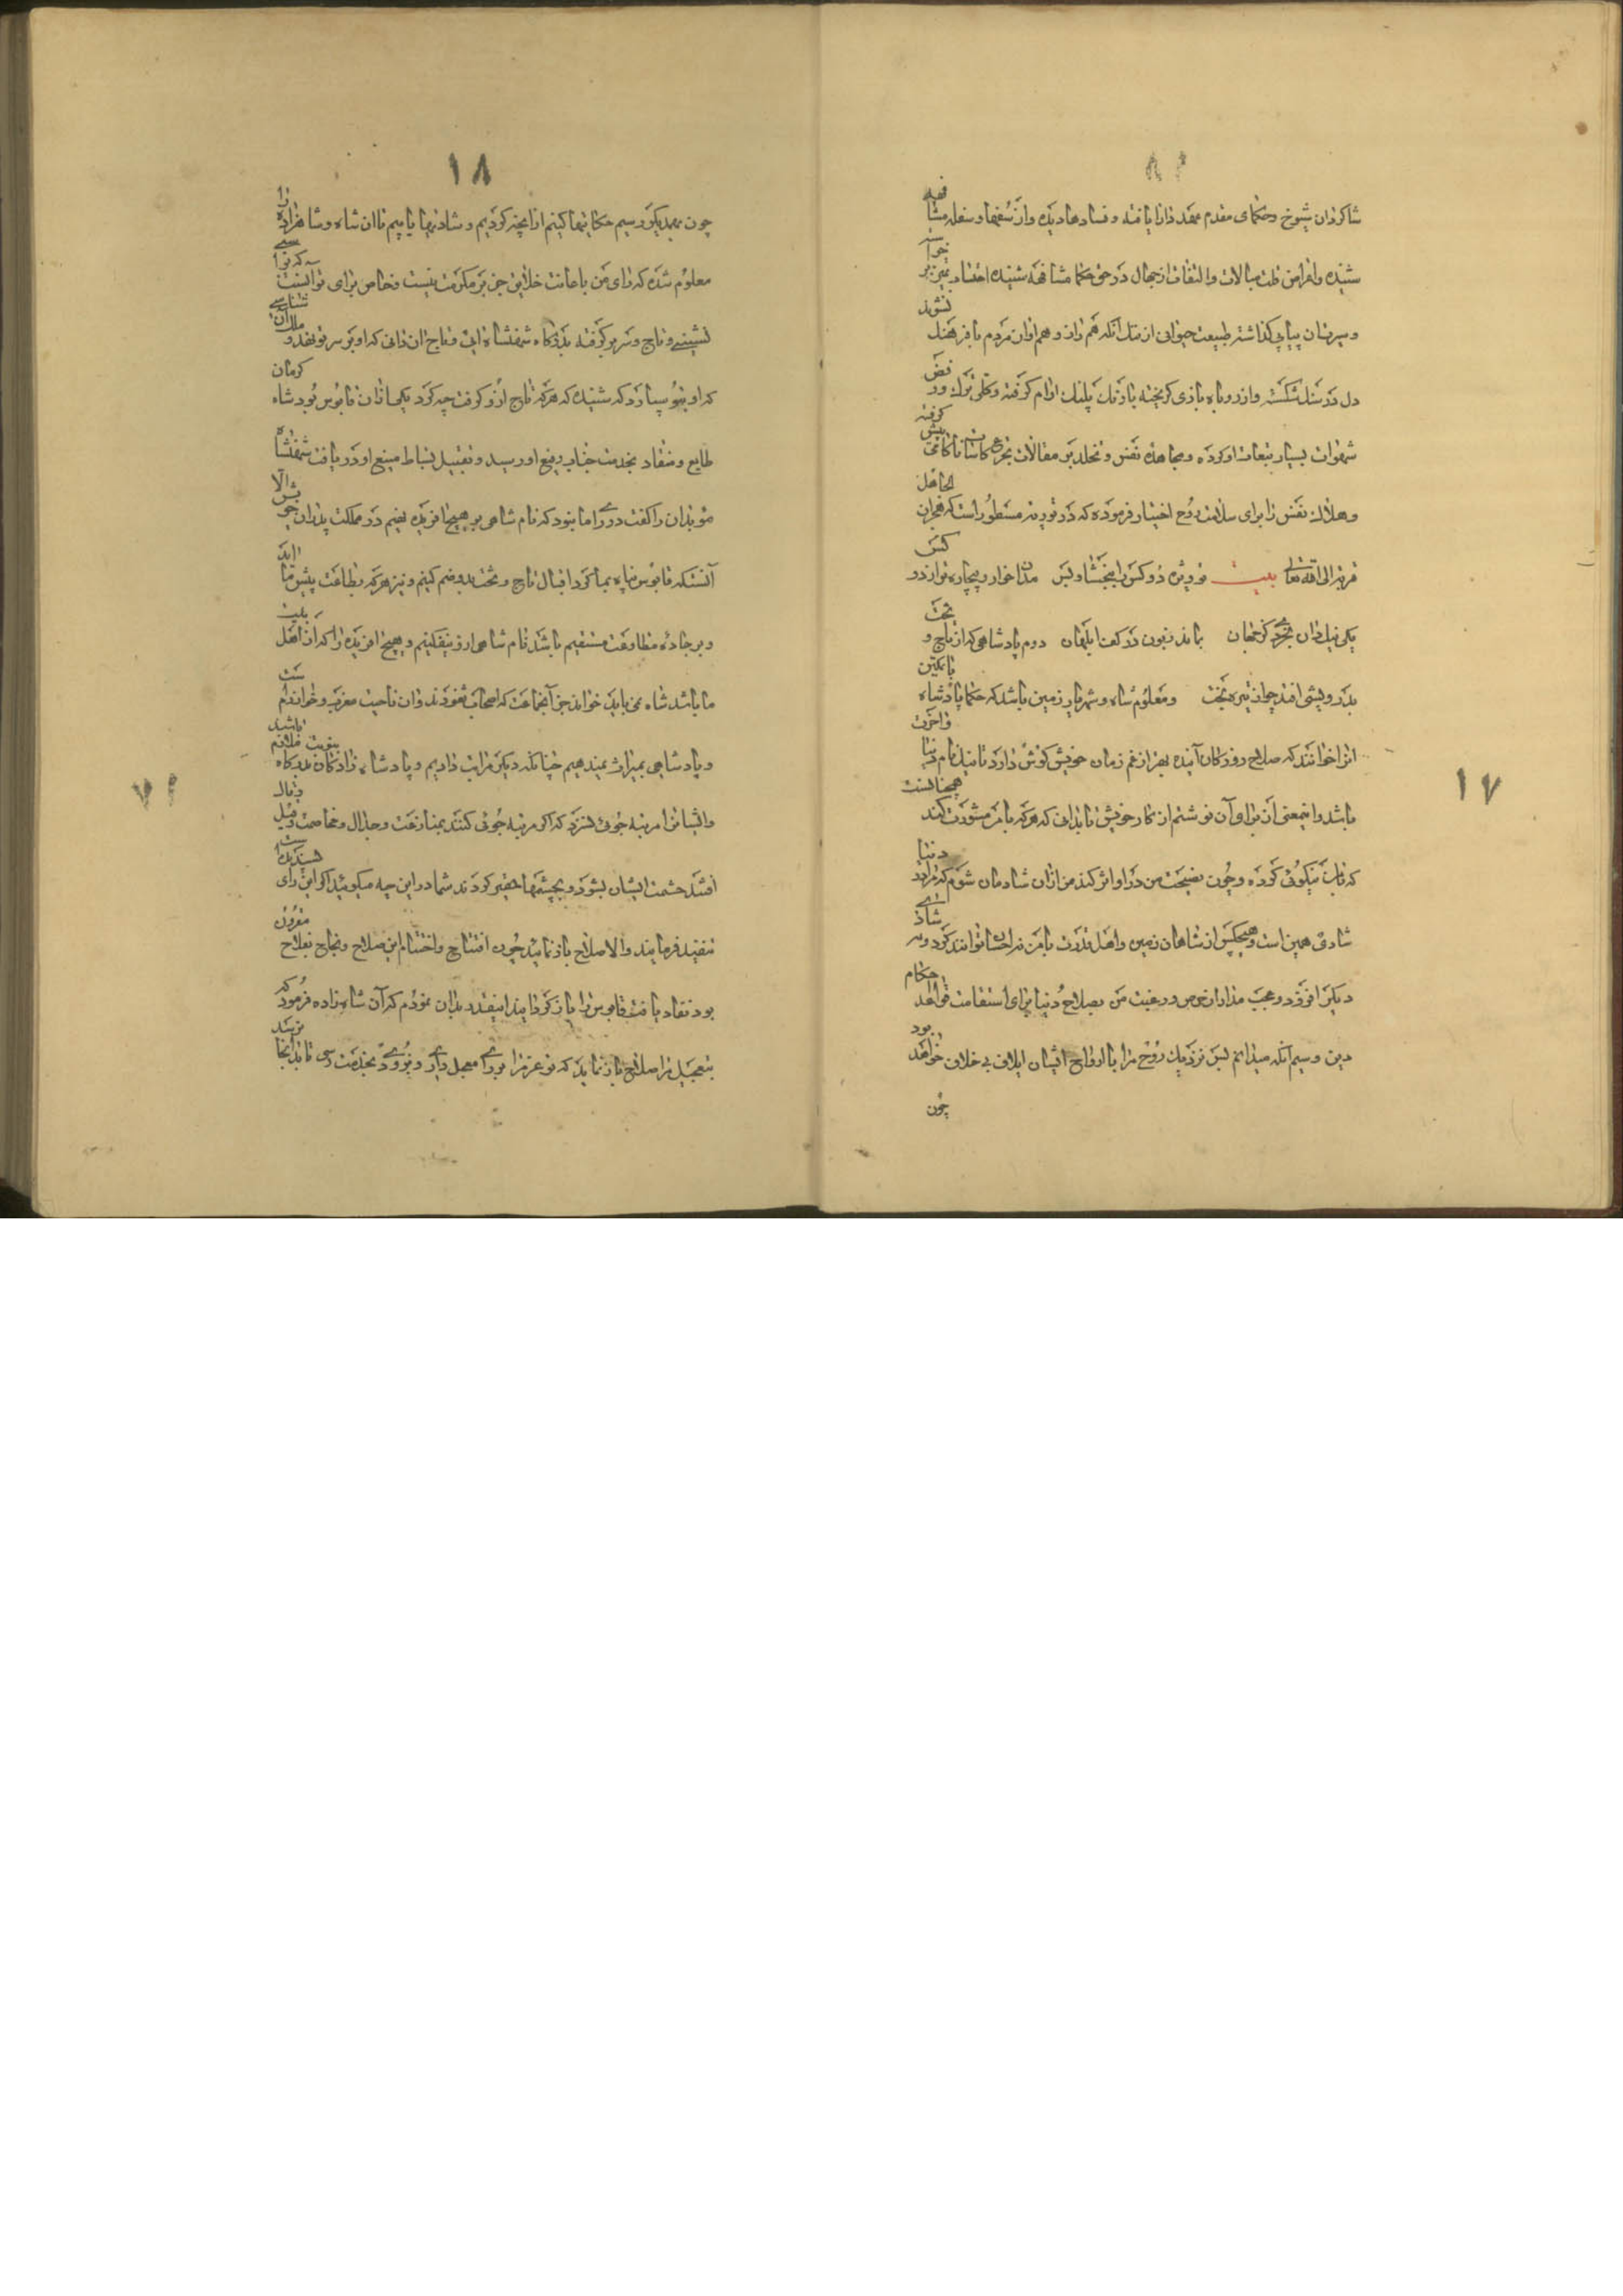 ۱۷
شاکردان شیوخ و حکمای مقدم بعهد دارا یافته و فسادها دیده و از سفها و سفله مشافهه
شنیده و اعراض قلت مبالات و التفات از جهال در حق حکما مشافهه شنیده احتساب تمییز برخواسته
و سیرت انسان بپای کذاشته طبیعت حیوانی از ننک آنکه هم راز و هم اوان مردم بافرهنک نشوند
دل در سنک شکسته و از روباه بازی کریخته با رنک پلنک آرام کرفته و کلی ترک و رفض
شهوات بسیار تبعات او کرده و مجاهده نفس و تجلد بر مقالات تجرع کاسات ناکامی پیش کرفته
و هلاک نفس را برای سلامت روح اختیار فرموده که در توریة مسطور است که هجران الجاهل
قربة الی الله تعالی بیت فرویژه دو کس را ببخشاو بس مدان خوار و بیچاره‌تر از دو کس
یکی نیک‌دان بخردی کز جهان بماند زبون در کف ابلهان دوم پادشاهی که از تاج و تخت
بدرویشی افتد چو از تیره بخت و معلوم شاه و شهریار زمین باشد که حکما پادشاه باتمکین
انرا خوانند که صلاح روزکار آینده بهتر از غم زمان خویش کوش دارد تا نیک نام دنیا و آخرت
باشد و اینمعنی آن برای آن نوشتم از کار خویش تا بدانی که هرکه با من مشورت کند همچنانست
که با من نیکوئی کرده و چون نصیحت من در او اثر کند من از آن شادمان شوم که مرا در دنیا
شادی همین است و هیچکس از شاهان زمین و اهل قدرت با من نه احسان توانند کرد و نه شادی
دیکر افزود و عجب مدار از حرص و رغبت من بصلاح دنیا برای استقامت قواعد احکام
دین و سیم آنکه میدانم پس نزدیک روح مرا با ارواح ایشان ایلاف بی خلاف خواهد بود
چون
۱۸
چون بهمدیکر رسیم حکایتها کنیم از آنچه کردیم و شادیها یابیم تا آن شاه و شاهزاده را
معلوم شده که رای من باعانت خلایق جز بر مکرمت نیست و خاص برای توانست که ترا
نشیننی و تاج و سریر کرفته بدرکاه شهنشاه آئی و تاج آن دانی که او بر سر تو نهد و ملک آن شناسی
که او بتو سپارد که شنیده که هرکه تاج ازو کرفت چه کرد یکی از آن قابوس بود شاه کرمان
طایع و منقاد بخدمت جناب رفیع او رسید و تقبیل بساط منیع او دریافت شهنشاه
موبدان را کفت در رای ما نبود که نام شاهی بر هیچ آفریده نهیم در مملکت پدران خویش الا
آنستکه قابوس پناه بما کرد اقبال تاج و تخت بدو ضم کنیم و نیز هرکه بطاعت پیش ما آید
و بر جاده مطاوعت مستقیم باشد نام شاهی ازو نیفکنیم و هیچ آفریده را که از اهل بیت
ما باشد شاه می‌باید خواند جز آنجماعت که اصحاب ثغورند و ان ناحیت مغرب و خوارزم است
و پادشاهی بمیراث بندهیم چنانکه دیکر مراتب دادیم و پادشاه زادکان بدرکاه بنوبت ملازم باشند
و ایشانرا مرتبه جوئی نسزد که اکر مرتبه جوئی کنند بمنازعت و جدال و مخاصمت و قیل و قال
افتند حشمت ایشان بشود و بچشمها حقیر کردند شما در این چه میکوئید اکر این رای پسندیده است
تنفیذ فرمایند و الا صلاح باز نمائید چون افتتاح و اختتام این صلاح و نجاح بفلاح مقرون
بود نفاذ یافت قابوس را باز کردانید اینقدر بدان نمودم که آن شاهزاده فرمود که
بتعجیل مرا صلاح باز نماید که تو عزمرا برای معجل داری و بزودی بخدمت رسی تا بدآنجا رسد